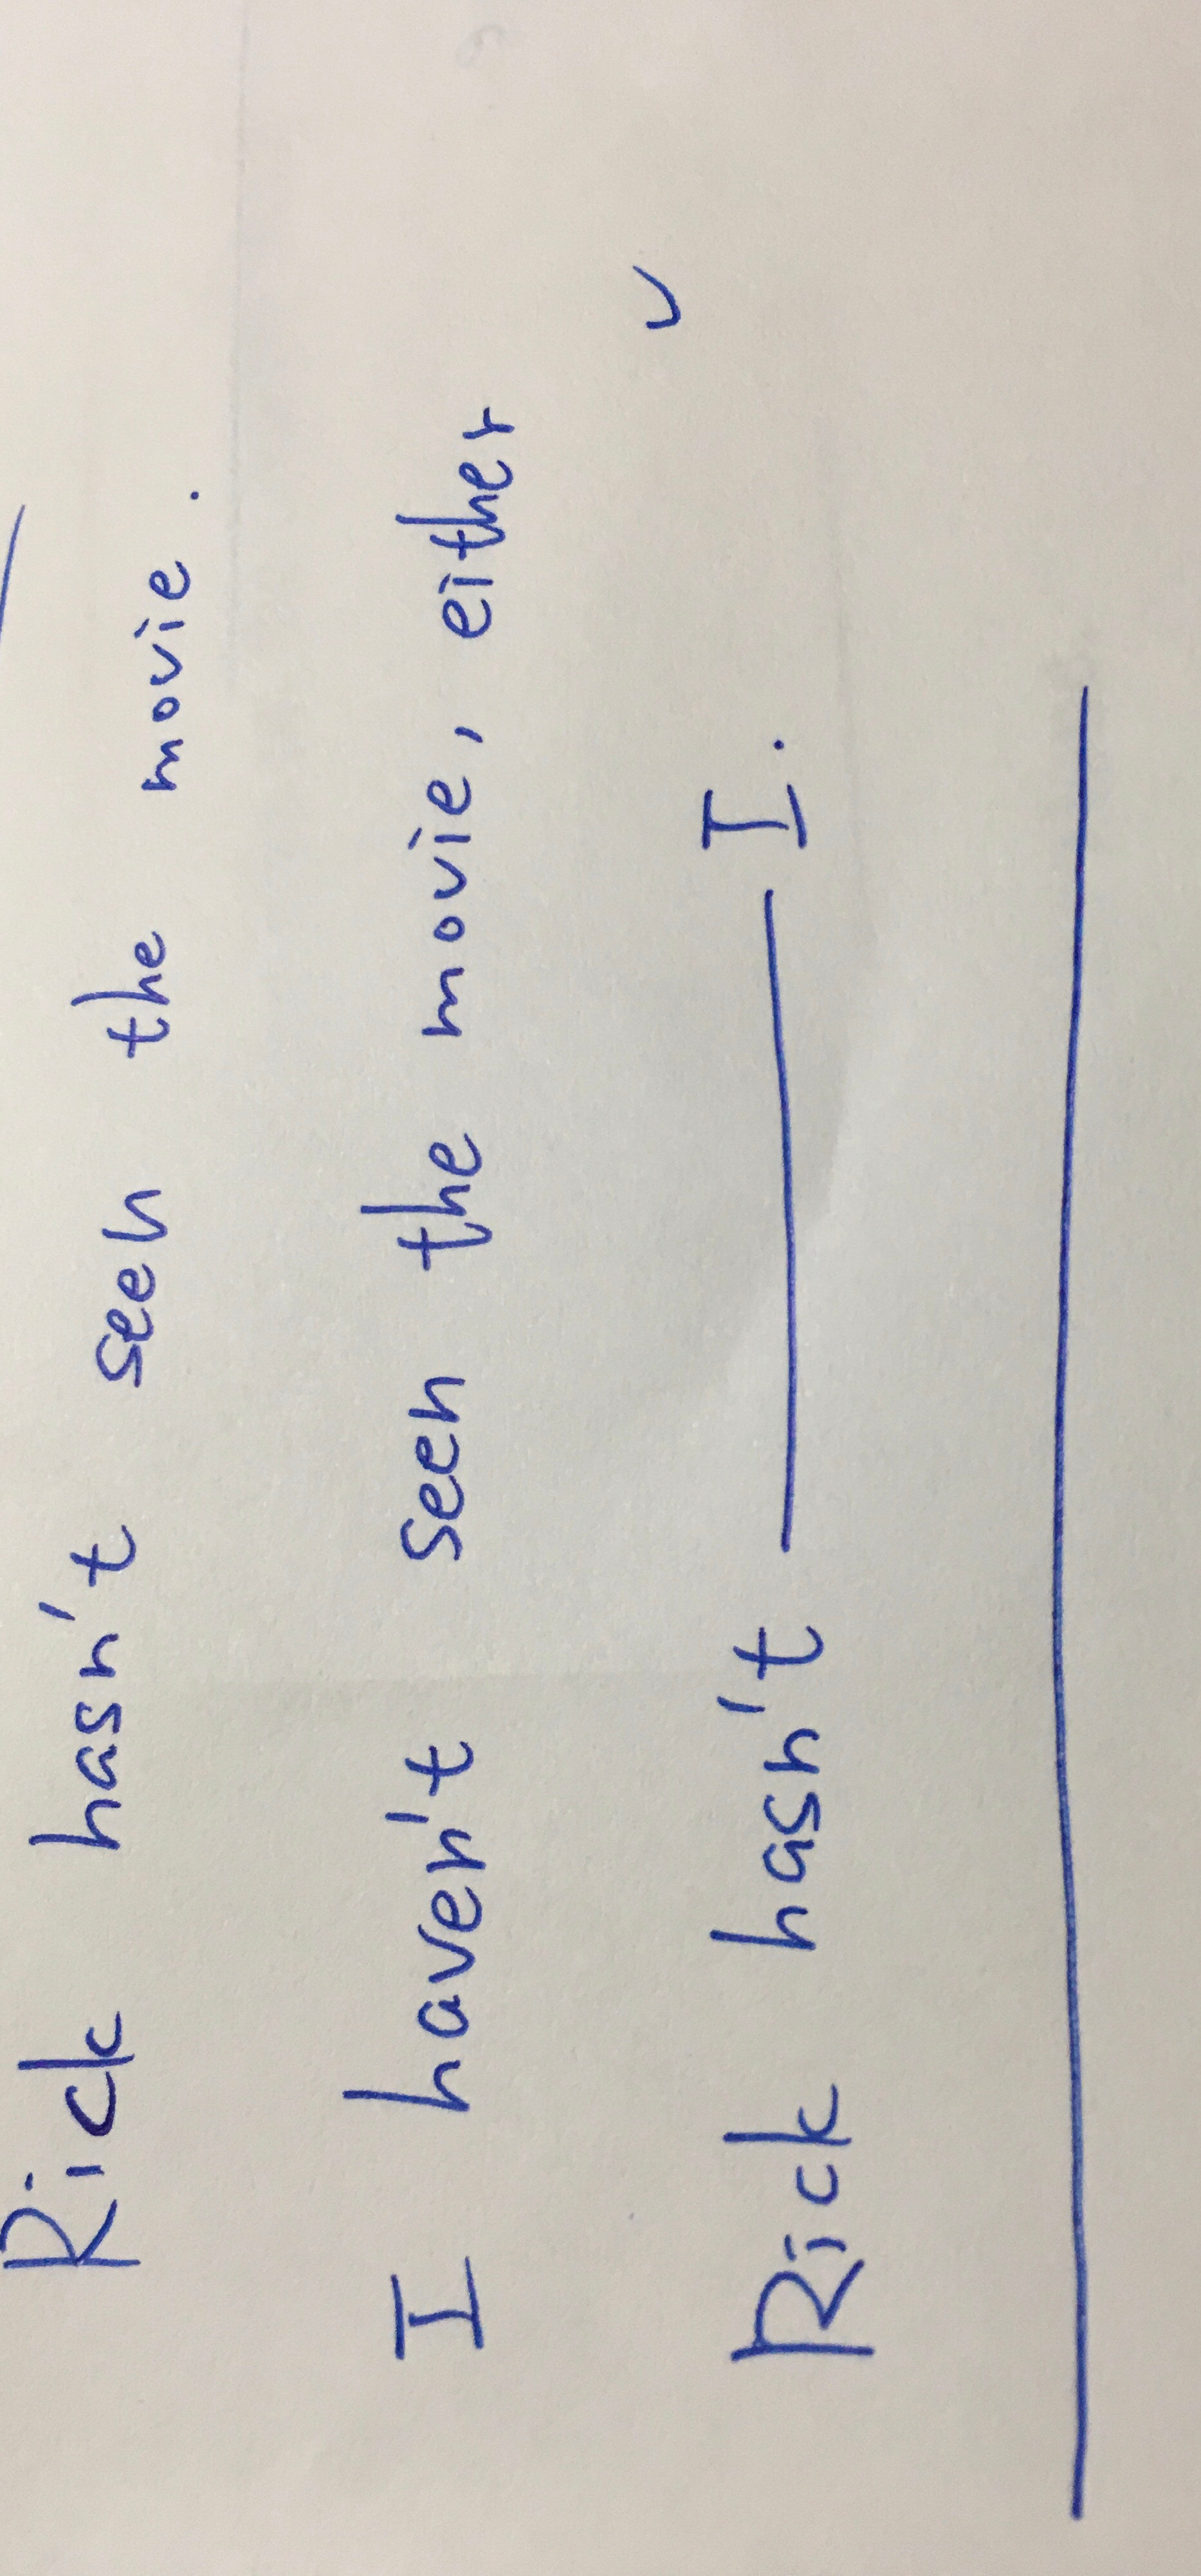 Rick hasn't seen the movie.
I haven't seen the movie, either
Rick hasn't ______ I.